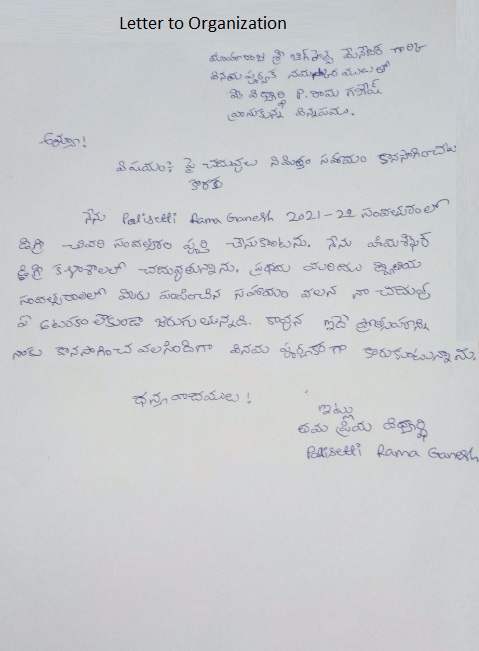 Letter to Organization
మహారాజ శ్రీ బిగ్ హెల్ప్ మేనేజర్ గారికి
వినయ పూర్వక నమస్కారములతో
మీ విద్యార్థి P. రామ గణేష్
వ్రాసుకున్న విన్నపము.
అయ్యా!
విషయం: పై చదువులు నిమిత్తం సహాయం కొనసాగించుట
కొరకు
నేను Palisetti Rama Ganesh 2021-22 సంవత్సరంలో
డిగ్రీ చివరి సంవత్సరం పూర్తి చేసుకుంటాను. నేను
డిగ్రీ కళాశాలలో చదువుతున్నాను. ప్రథమ మరియు ద్వితీయ
సంవత్సరాలలో మీరు పంపించిన సహాయం వలన నా చదువు
ఏ ఆటంకం లేకుండా జరుగుతున్నది. కావున ఇదే ప్రోత్సాహాన్ని
నాకు కొనసాగించ వలసిందిగా వినయ పూర్వకంగా కోరుకుంటున్నాను.
ధన్యవాదములు!
ఇట్లు
తమ ప్రియ విద్యార్థి
Palisetti Rama Ganesh